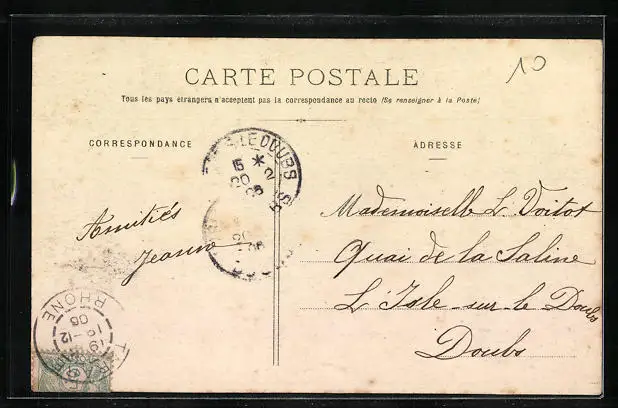 10
CARTE POSTALE
Tous les pays étrangers n'acceptent pas la correspondance au recto (Se renseigner à la Poste)
CORRESPONDANCE
ADRESSE
LE DOUBS
15 * 2
20
06
Amitiés
Jeanne
20
06
Mademoiselle L. Voitot
Quai de la Saline
L'Isle-sur-le Doubs
Doubs
RHONE
19-12
06